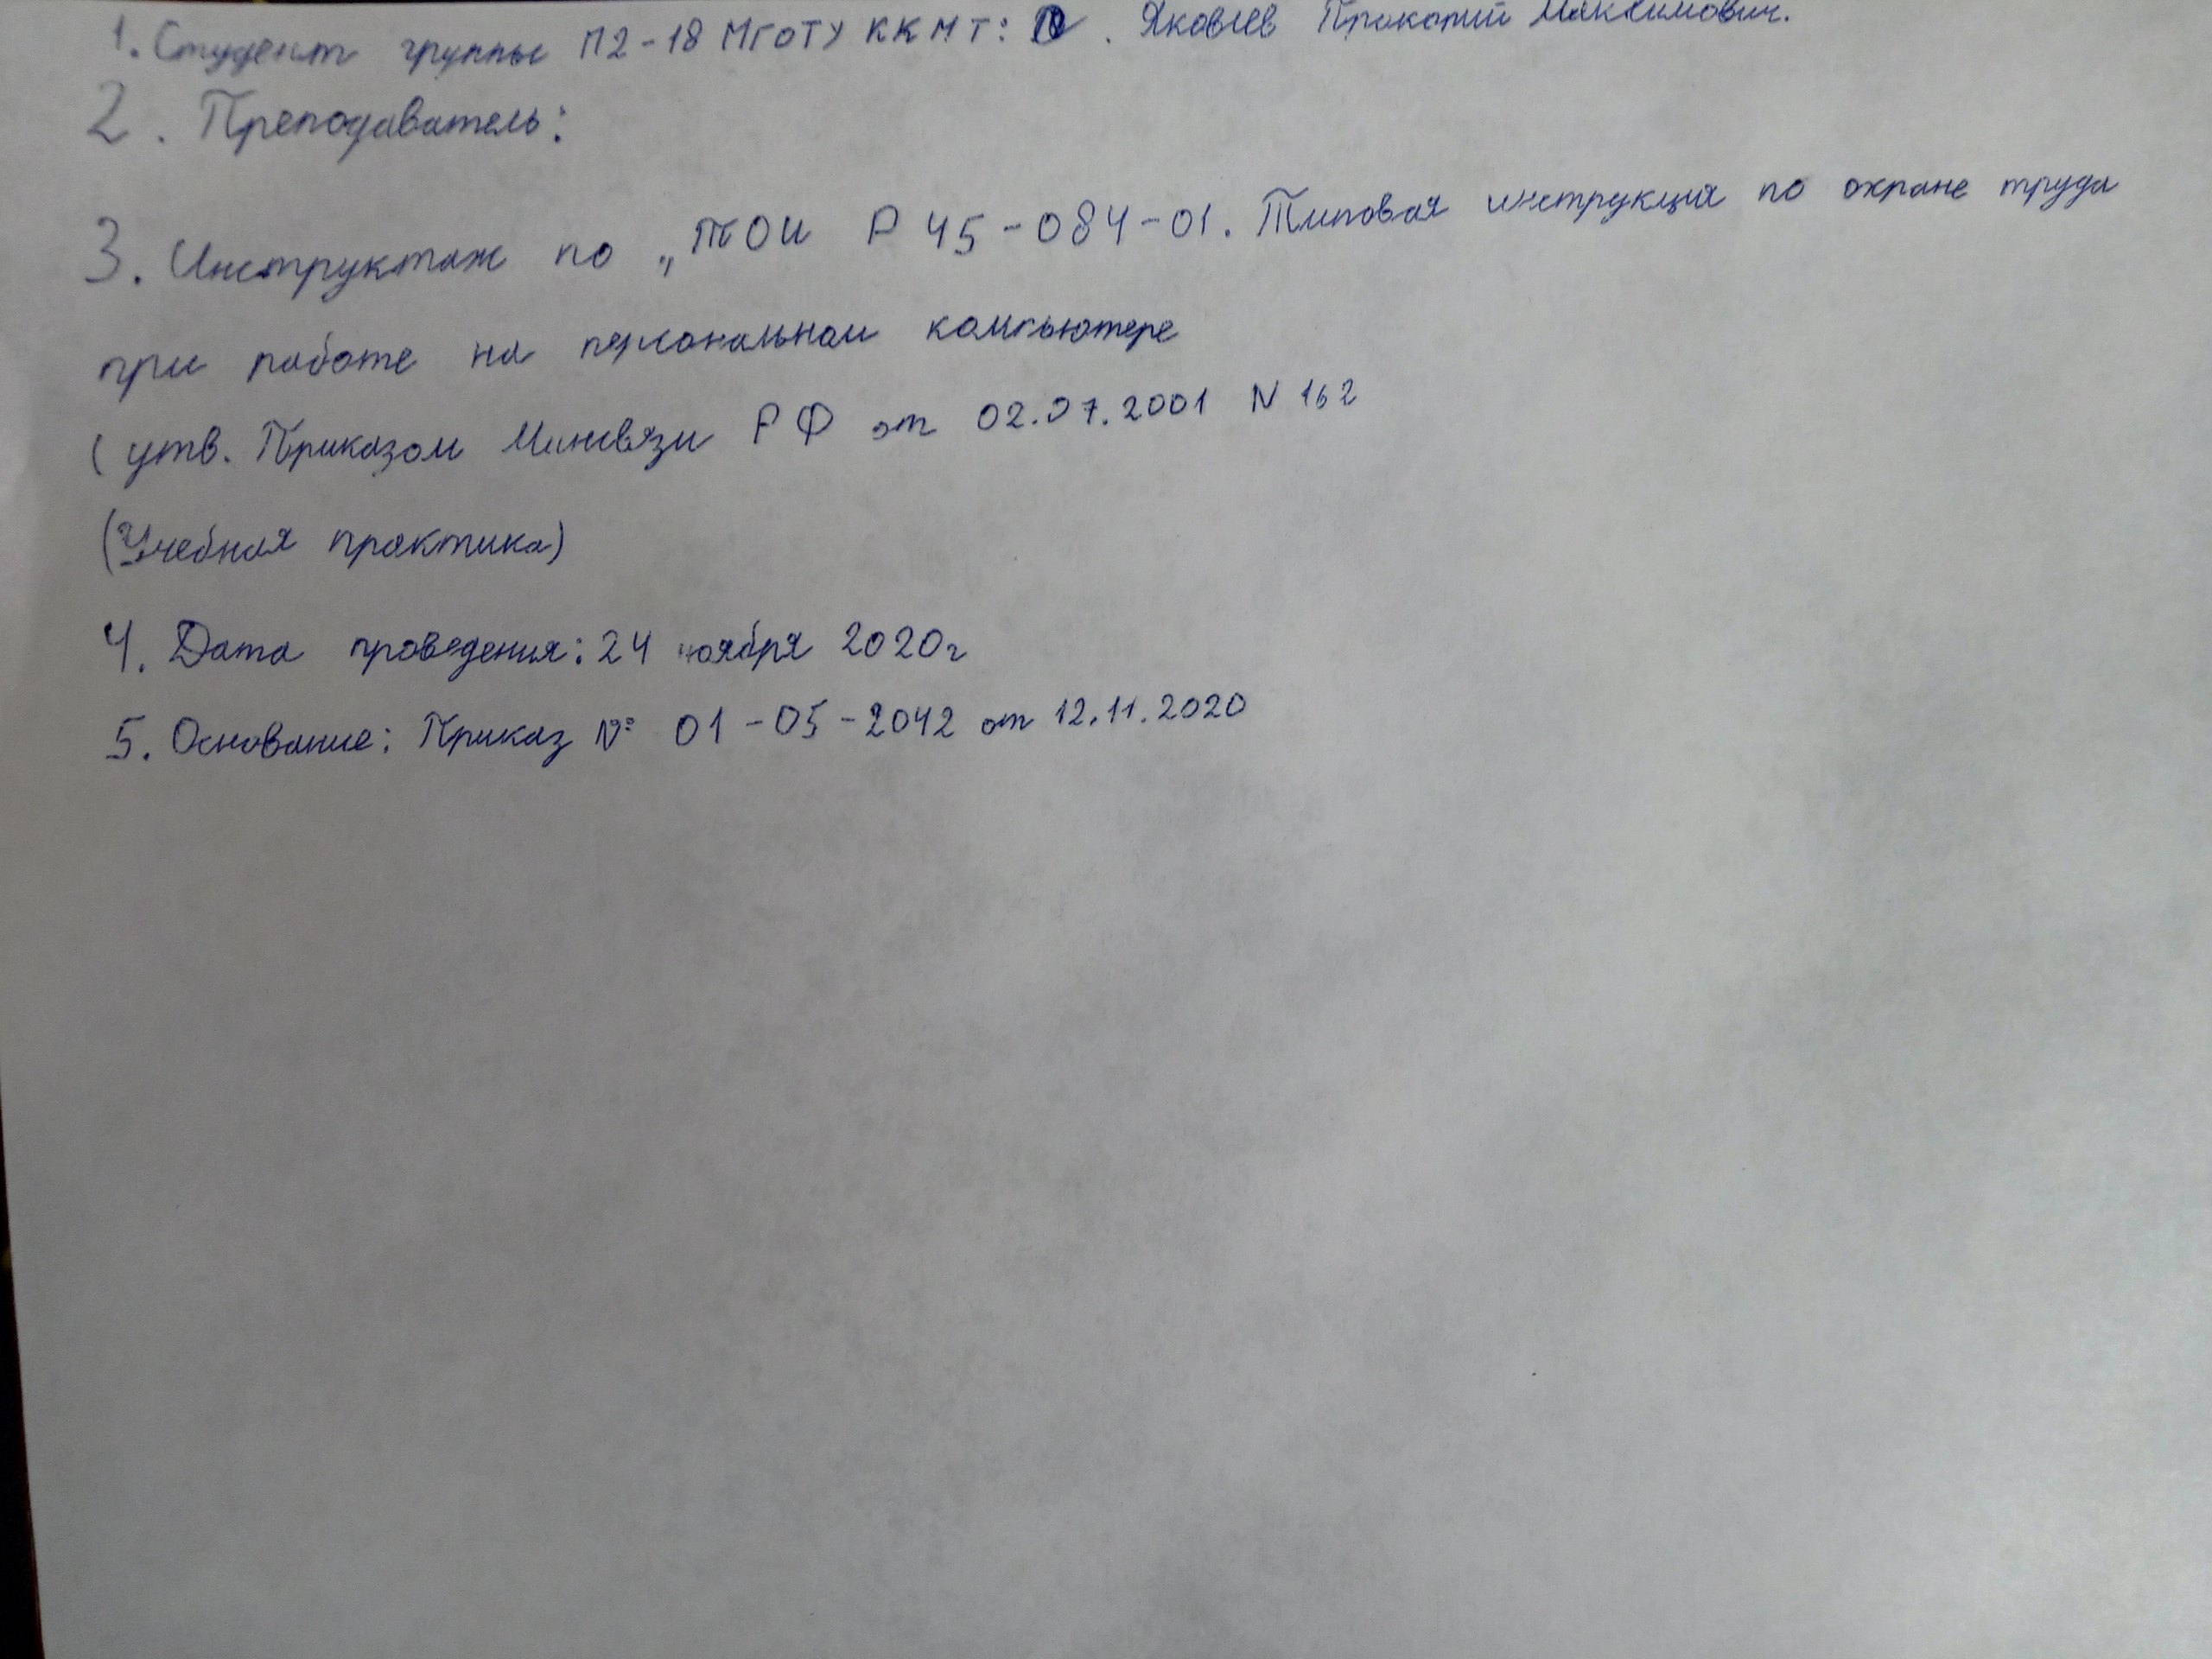 1. Студент группы П2-18 МГОТУ ККМТ: . Яковлев Прокопий Максимович.
2. Преподаватель:
3. Инструктаж по „ТОИ Р 45-084-01. Типовая инструкция по охране труда
при работе на персональном компьютере
(утв. Приказом Минсвязи РФ от 02.07.2001 N 162
(Учебная практика)
4. Дата проведения: 24 ноября 2020г
5. Основание: Приказ № 01-05-2042 от 12.11.2020